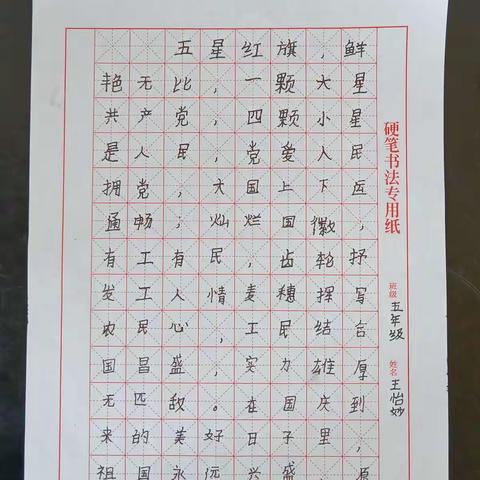 五星红旗，鲜
艳无比，一颗大星
共产党，四颗小星
是人民，党爱人民
拥党，大国上下运
通畅；灿烂国徽，
有工有民，齿轮抒
发工人情麦穗挥写
农民心，工民结合
国昌盛；实力雄厚
无匹敌。在国庆到
来的美好日子里，
祖国永远兴盛，
硬笔书法专用纸
班级 五年级 姓名 王怡妙